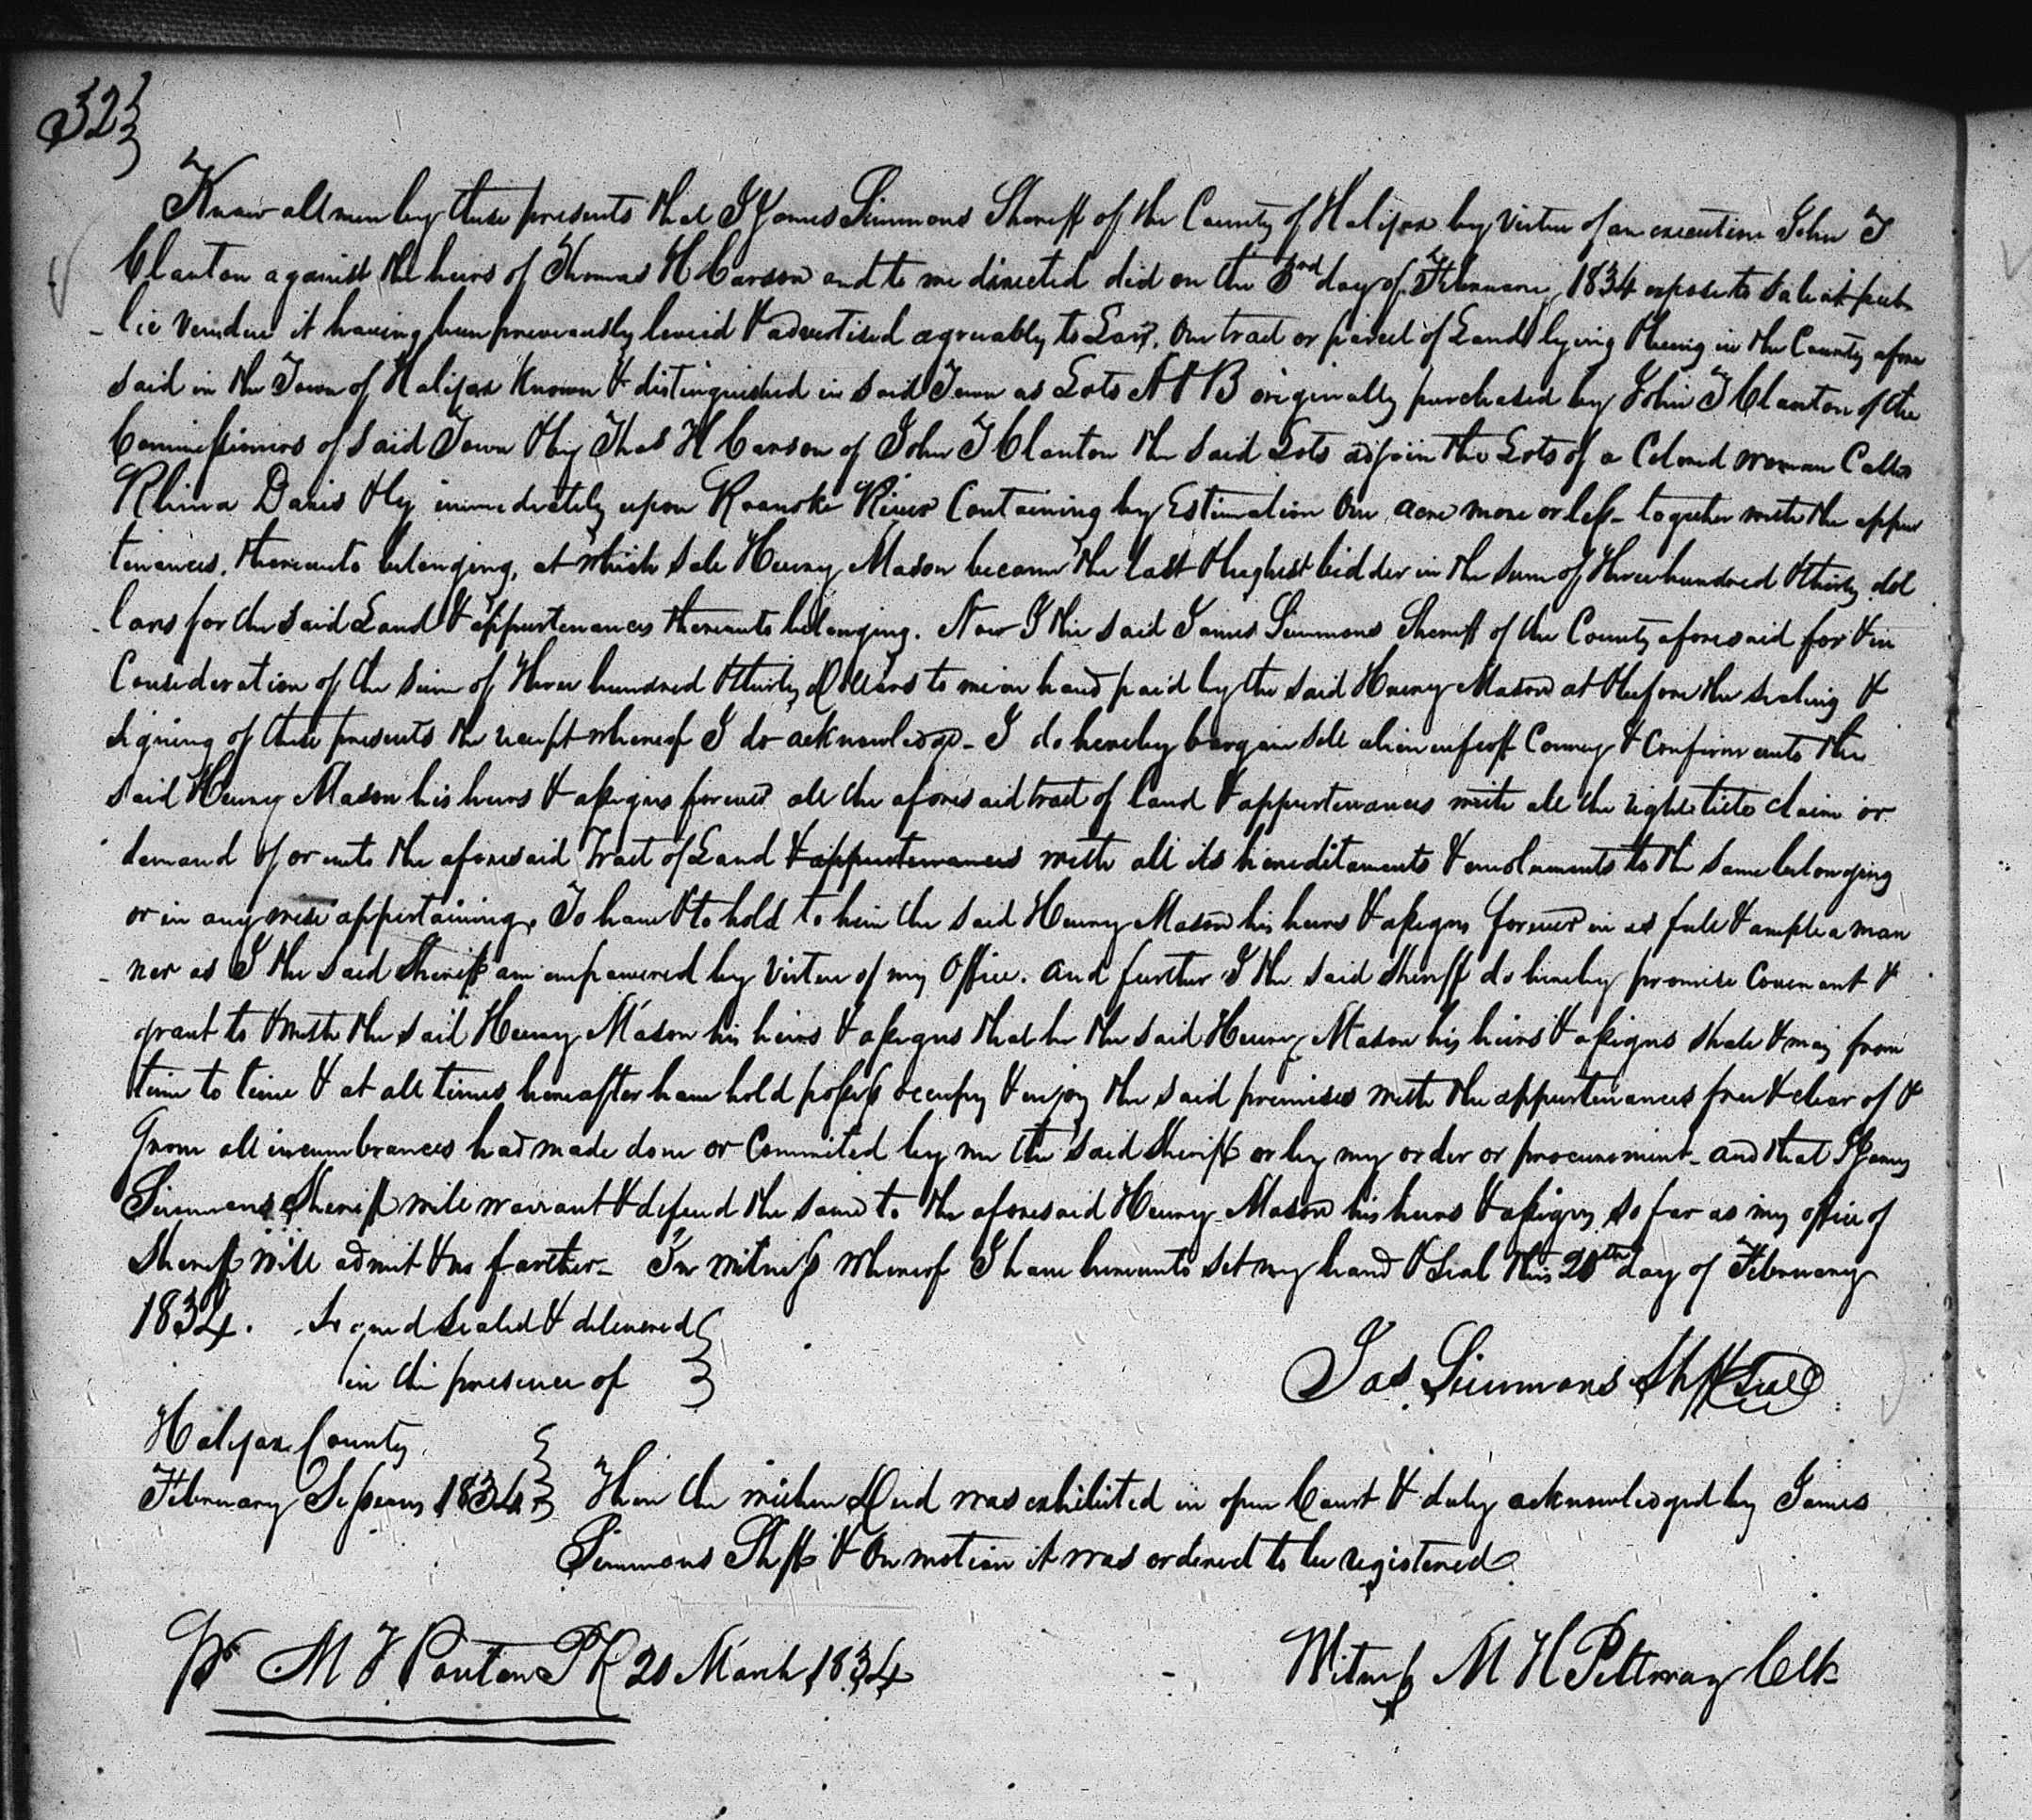 323
Know all men by these presents that I James Simmons Sheriff of the County of Halifax by virtue of an execution John T
Clanton against the heirs of Thomas H Carson and to me directed did on the 3rd day of February 1834 expose to sale at pub
lic Vendue it having been previously levied & advertised agreeably to Law, One tract or parcel of Land lying & being in the County afore
said in the Town of Halifax Known & distinguished in said Town as Lots A & B originally purchased by John T Clanton of the
Commissioners of said Town & by Thos H Carson of John T Clanton the said Lots adjoin the Lots of a Colored woman Called
Davis & ly immediately upon Roanoke River Containing by Estimation One acre more or less - together with the appur
tenances, thereunto belonging, at which sale Henry Mason became the last & highest bidder in the sum of three hundred & thirty dol
- lars for the said Land & appurtenances thereunto belonging. Now I the said James Simmons Sheriff of the County aforesaid for & in
Consideration of the sum of three hundred & thirty Dollars to me in hand paid by the said Henry Mason at & before the sealing &
signing of these presents the receipt whereof I do acknowledge - I do hereby bargain sell alien enfeoff Convey & Confirm unto the
said Henry Mason his heirs & assigns forever all the aforesaid tract of land & appurtenances with all the right title claim or
demand of or unto the aforesaid Tract of Land & appurtenances with all its hereditaments & emoluments to the same belonging
or in any wise appertaining, To have & to hold to him the said Henry Mason his heirs & assigns forever in as full & ample a man
- ner as I the said Sheriff am empowered by virtue of my Office. And further I the said Sheriff do hereby promise Covenant &
grant to & with the said Henry Mason his heirs & assigns that he the said Henry Mason his heirs & assigns shall & may from
time to time & at all times hereafter have hold possess occupy & enjoy the said premises with the appurtenances free & clear of &
from all incumbrances had made done or Commited by me the said Sheriff or by my order or procurement - and that I James
Simmons Sheriff will warrant & defend the same to the aforesaid Henry Mason his heirs & assigns so far as my office of
Sheriff will admit & no farther - In witness whereof I have hereunto set my hand & seal this 20th day of February
1834. Signed sealed & delivered
in the presence of
Jas. Simmons Shff Seal
Halifax County
February Sessions 1834
Then the within Deed was exhibited in open Court & duly acknowledged by James
Simmons Shff & On motion it was ordered to be registered
Pr M F Ponton P R 20 March 1834
Witness M H Pettway Clk